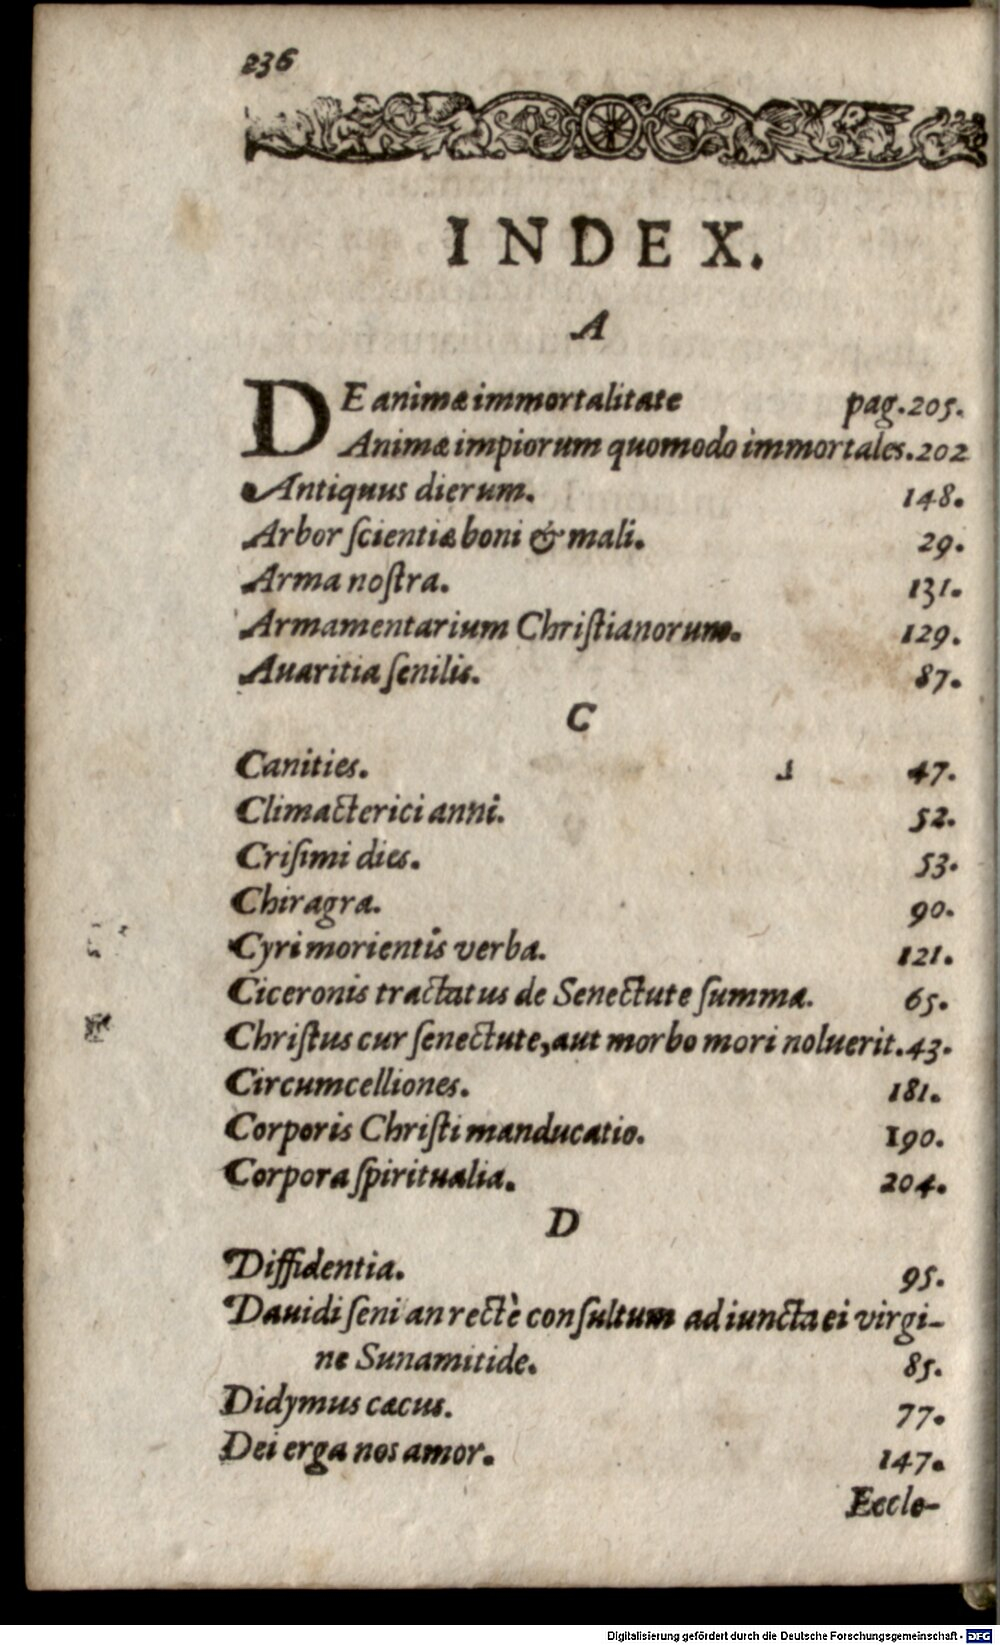 236
INDEX.
A
DE animæ immortalitate pag.205.
Animæ impiorum quomodo immortales.202
Antiquus dierum. 148.
Arbor ſcientiæ boni & mali. 29.
Arma noſtra. 131.
Armamentarium Chriſtianorum. 129.
Auaritia ſenilis. 87.
C
Canities. 47.
Climacterici anni. 52.
Criſimi dies. 53.
Chiragra. 90.
Cyri morientis verba. 121.
Ciceronis tractatus de Senectute ſumma. 65.
Chriſtus cur ſenectute, aut morbo mori noluerit.43.
Circumcelliones. 181.
Corporis Chriſti manducatio. 190.
Corpora ſpiritualia. 204.
D
Diffidentia. 95.
Dauidi ſeni an rectè conſultum adiuncta ei virgi-
ne Sunamitide. 85.
Didymus cæcus. 77.
Dei erga nos amor. 147.
Eccle-
Digitalisierung gefördert durch die Deutsche Forschungsgemeinschaft - DFG